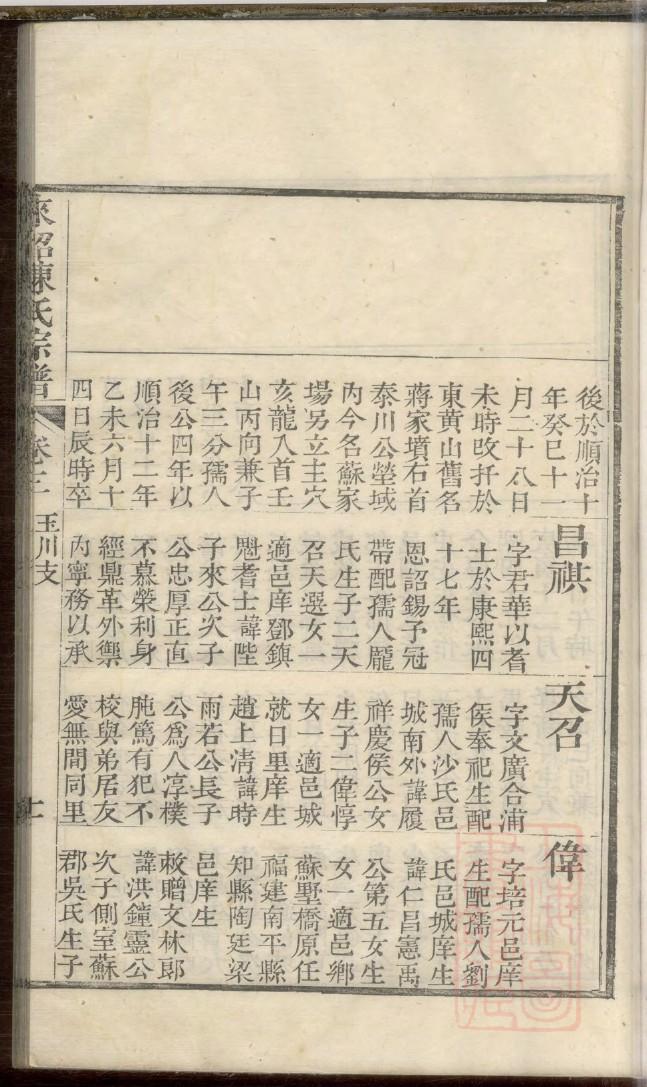 後於順治十
年癸巳十一
月二十八日
未時改扦於
東黄山舊名
蔣家墳右首
泰川公塋域
內今名蘇家
塲另立主穴
亥龍入首壬
山丙向兼子
午三分孺人
後公四年以
順治十二年
乙未六月十
四日辰時卒
昌祺
字君華以耆
士於康熙四
十七年
恩詔錫予冠
帶配孺人龎
氏生子二天
召天選女一
適邑庠鄧鎮
魁耆士諱陛
子來公次子
公忠厚正直
不慕榮利身
經鼎革外禦
內寧務以承
天召
字文廣合浦
侯奉祀生配
孺人沙氏邑
城南外諱履
祥慶侯公女
生子二偉惇
女一適邑城
就日里庠生
趙上清諱時
雨若公長子
公爲人淳樸
肫篤有犯不
校與弟居友
愛無間同里
偉
字培元邑庠
生配孺人劉
氏邑城庠生
諱仁昌憲禹
公第五女生
女一適邑鄉
蘇墅橋原任
福建南平縣
知縣陶廷梁
邑庠生
敕贈文林郎
諱洪鐘靈公
次子側室蘇
郡吳氏生子
陳氏宗譜
卷三
玉川支